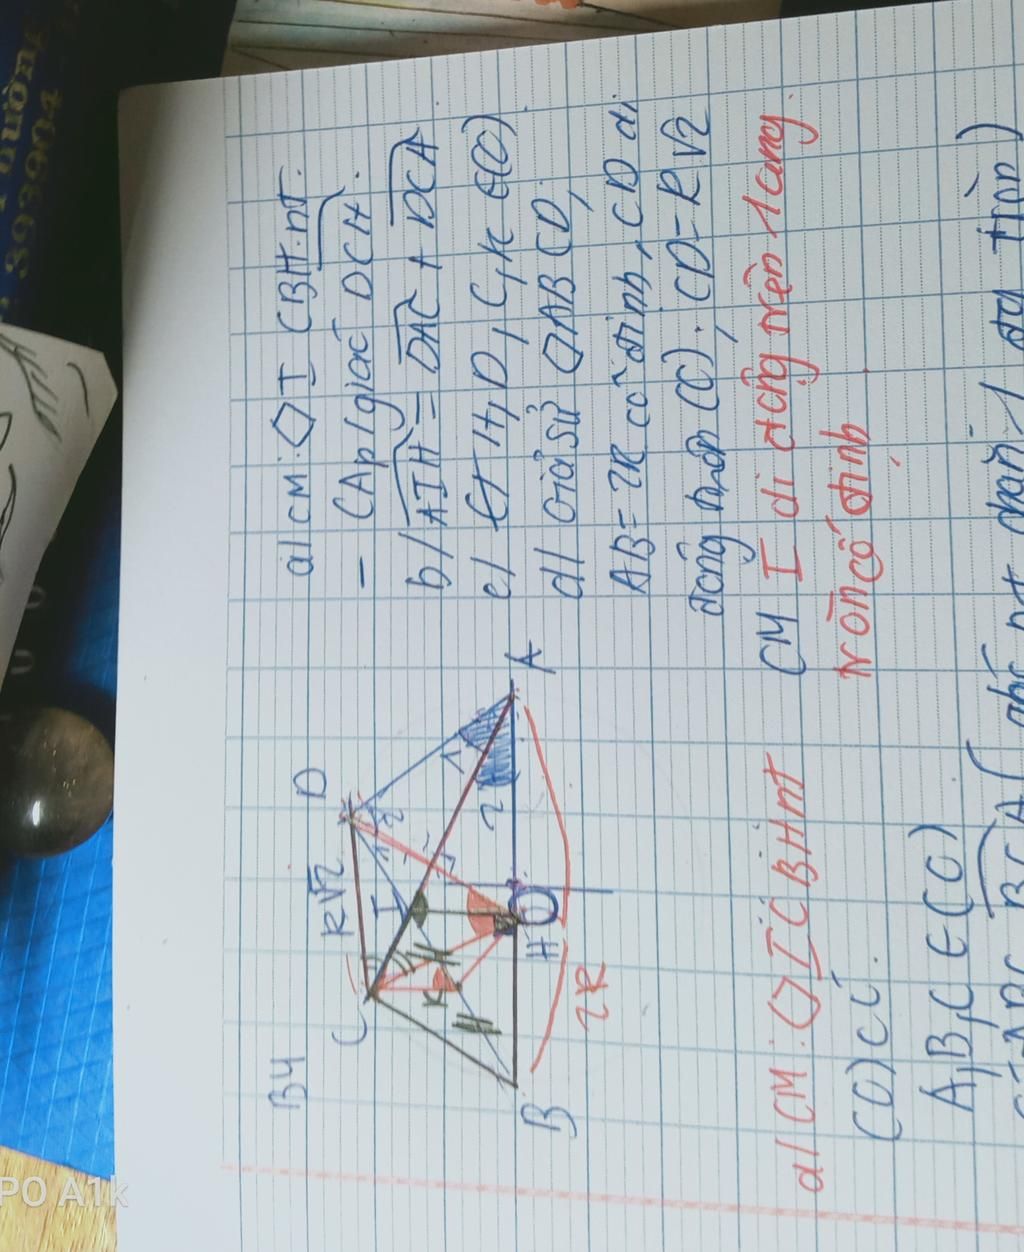 B4
a/ CM: ◇ I CBH.nt.
- CA p/giác DCH.
b/ AIH = DAC + DCA
c/ H, D, C, K ∈(O).
d/ Giả sử ◇ABCD,
AB = 2R cố định, CD di
động trên (O). CD = R√2
CM I di động trên 1 cung
tròn cố định
C
R√2
D
I
K
A
B
H
O
1
2
2R
a/ CM: ◇ICBHnt
(O) có:
A,B,C ∈ (O)